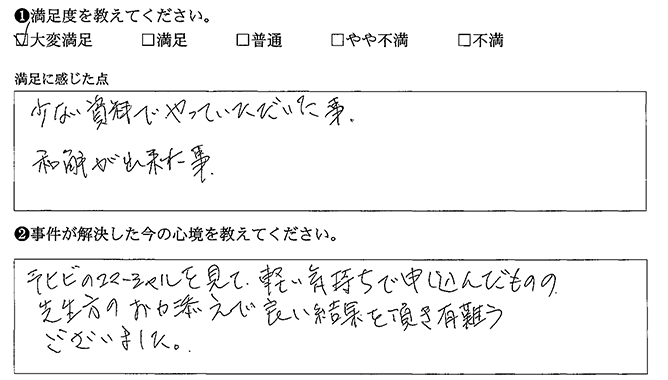 ❶満足度を教えてください。
☑大変満足 □満足 □普通 □やや不満 □不満
満足に感じた点
少ない資料でやっていただいた事。
和解が出来た事。
❷事件が解決した今の心境を教えてください。
テレビのコマーシャルを見て、軽い気持ちで申し込んだものの
先生方のお力添えで良い結果を頂き有難う
ございました。